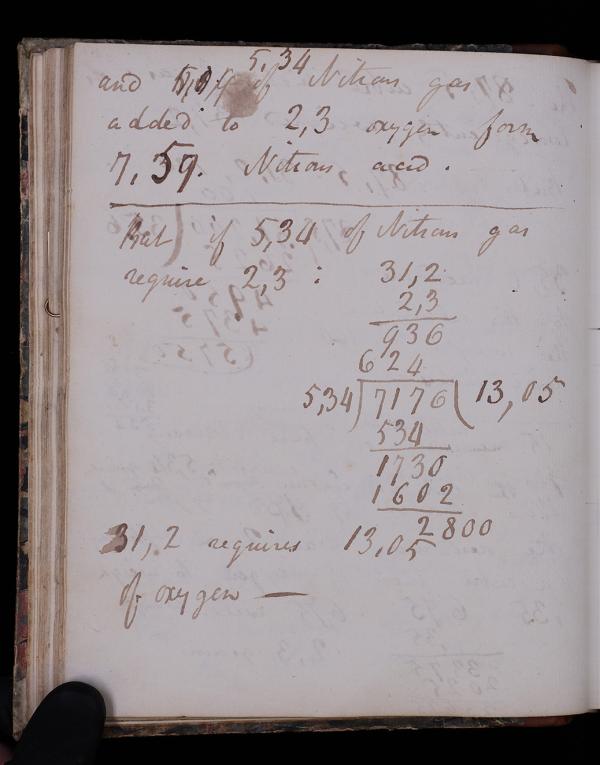 5,34
and of Nitrous gas
added to 2,3 oxygen form
7,59. Nitrous acid.
But if 5,34 of Nitrous gas
require 2,3 : 31,2
2,3
936
624
5,34) 7176 ( 13,05
534
1730
1602
2800
31,2 requires 13,05
of oxygen —